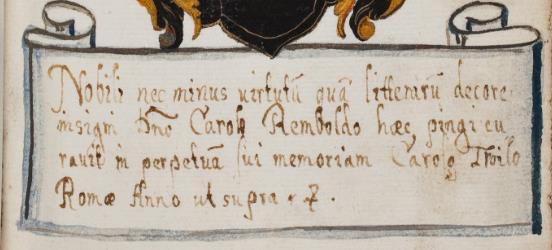 Nobili nec minus virtutũ quã litterarũ decore
insigni Dño Carolo Remboldo hæc pingi cu⸗
ravit in perpetuã sui memoriam Carolꝰ Troilo
Romæ Anno ut supra